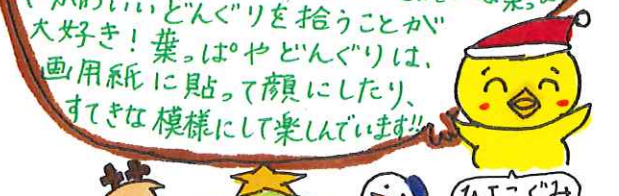 やかわいいどんぐりを拾うことが
大好き!葉っぱやどんぐりは、
画用紙に貼って顔にしたり、
すてきな模様にして楽しんでいます!!
ひよこぐみ